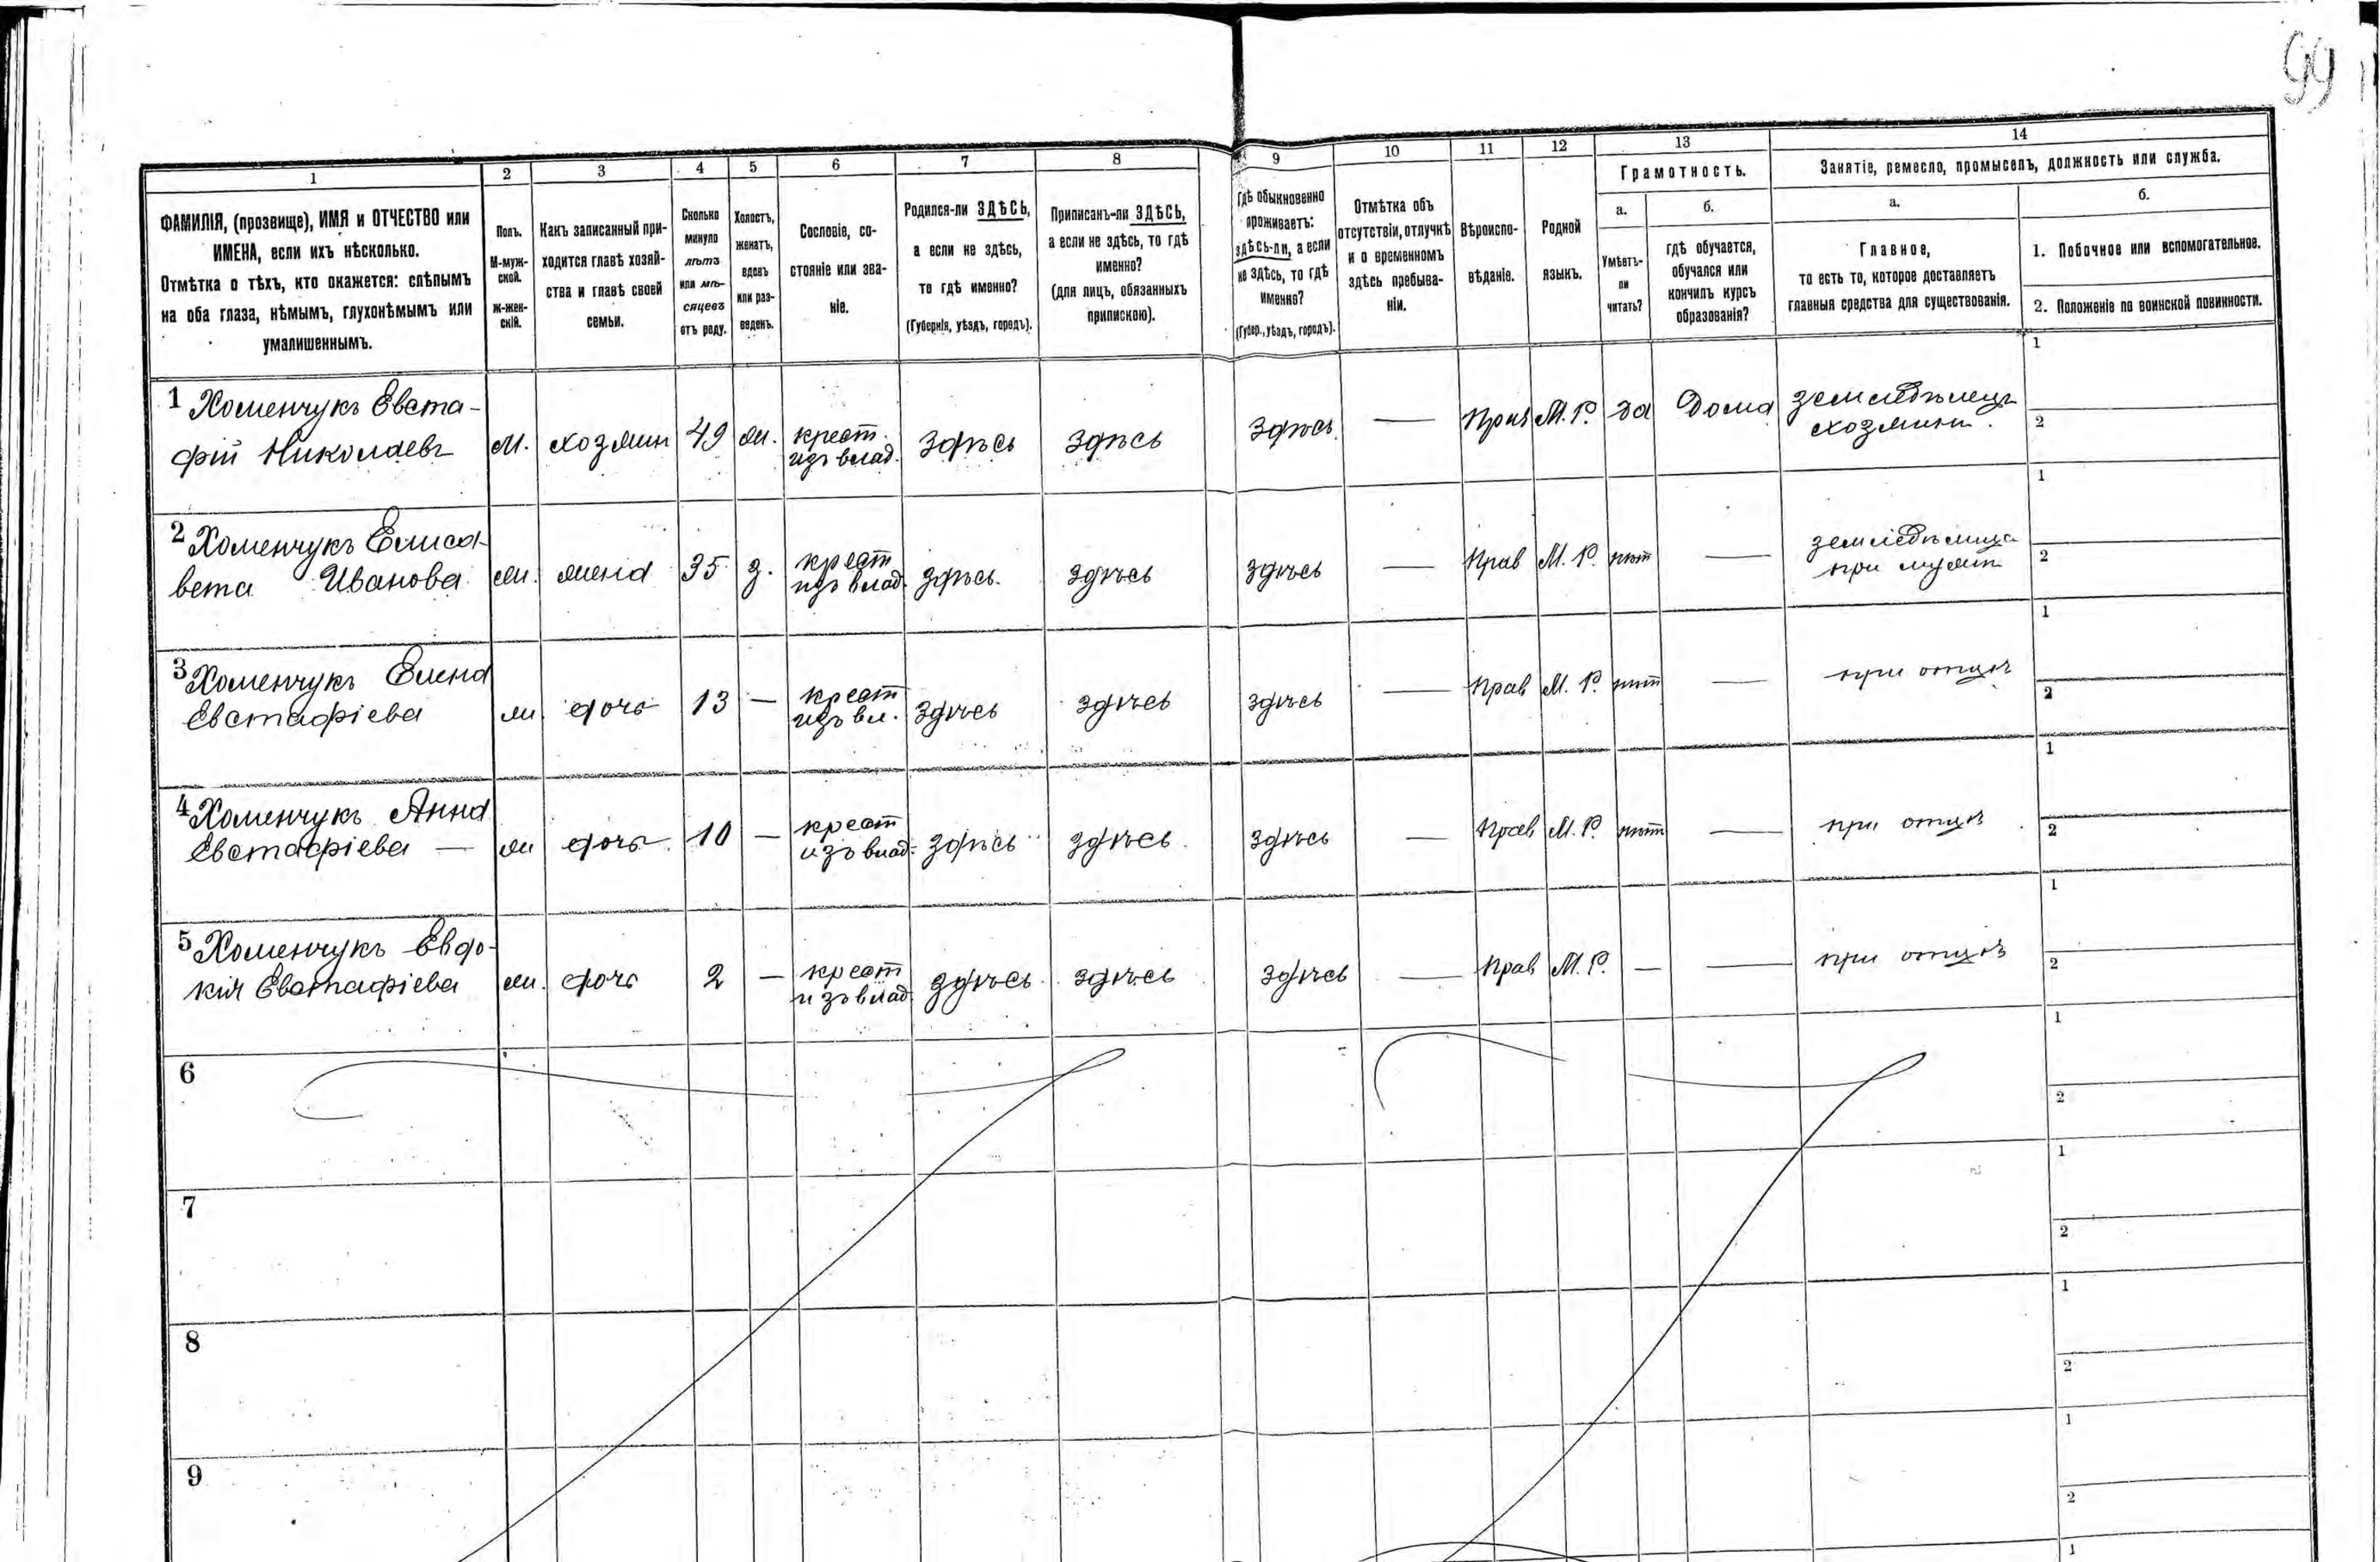 99
1
2
3
4
5
6
7
8
9
10
11
12
13
14
ФАМИЛІЯ, (прозвище), ИМЯ и ОТЧЕСТВО или
ИМЕНА, если ихъ нѣсколько.
Отмѣтка о тѣхъ, кто окажется: слѣпымъ
на оба глаза, нѣмымъ, глухонѣмымъ или
умалишеннымъ.
Полъ.
М-муж-
ской.
Ж-жен-
скій.
Какъ записанный при-
ходится главѣ хозяй-
ства и главѣ своей
семьи.
Сколько
минуло
лѣтъ
или мѣ-
сяцевъ
отъ роду.
Холостъ,
женатъ,
вдовъ
или раз-
веденъ.
Сословіе, со-
стояніе или зва-
ніе.
Родился-ли ЗДѢСЬ,
а если не здѣсь,
то гдѣ именно?
(Губернія, уѣздъ, городъ).
Приписанъ-ли ЗДѢСЬ,
а если не здѣсь, то гдѣ
именно?
(для лицъ, обязанныхъ
припискою).
Гдѣ обыкновенно
проживаетъ:
здѣсь-ли, а если
не здѣсь, то гдѣ
именно?
(Губер., уѣздъ, городъ).
Отмѣтка объ
отсутствіи, отлучкѣ
и о временномъ
здѣсь пребыва-
ніи.
Вѣроиспо-
вѣданіе.
Родной
языкъ.
Грамотность.
а.
Умѣетъ-
ли
читать?
б.
гдѣ обучается,
обучался или
кончилъ курсъ
образованія?
Занятіе, ремесло, промыселъ, должность или служба.
а.
Главное,
то есть то, которое доставляетъ
главныя средства для существованія.
б.
1. Побочное или вспомогательное.
2. Положеніе по воинской повинности.
1 Хоменчукъ Евста-
фій Николаевъ
м.
хозяин
49
ж.
крест.
изъ влад.
здѣсь
здѣсь
здѣсь
—
Прав
М. Р.
да
Дома
земледѣлецъ
хозяинъ.
1
2
2 Хоменчукъ Елиса-
вета Иванова
ж.
жена
35
з.
крест
изъ влад.
здѣсь.
здѣсь
здѣсь
—
Прав
М. Р.
нѣт
—
земледѣлица
при мужѣ
1
2
3 Хоменчукъ Елена
Евстафіева
ж
дочь
13
—
крест
изъ вл.
здѣсь
здѣсь
здѣсь
—
Прав
М. Р.
нѣт
—
при отцѣ
1
2
4 Хоменчукъ Анна
Евстафіева —
ж
дочь
10
—
крест
изъ влад.
здѣсь
здѣсь
здѣсь
—
Прав
М. Р.
нѣт
—
при отцѣ
1
2
5 Хоменчукъ Евдо-
кія Евстафіева
ж.
дочь
2
—
крест
изъ влад
здѣсь
здѣсь
здѣсь
—
Прав
М. Р.
—
—
при отцѣ
1
2
6
1
2
7
1
2
8
1
2
9
1
2
1